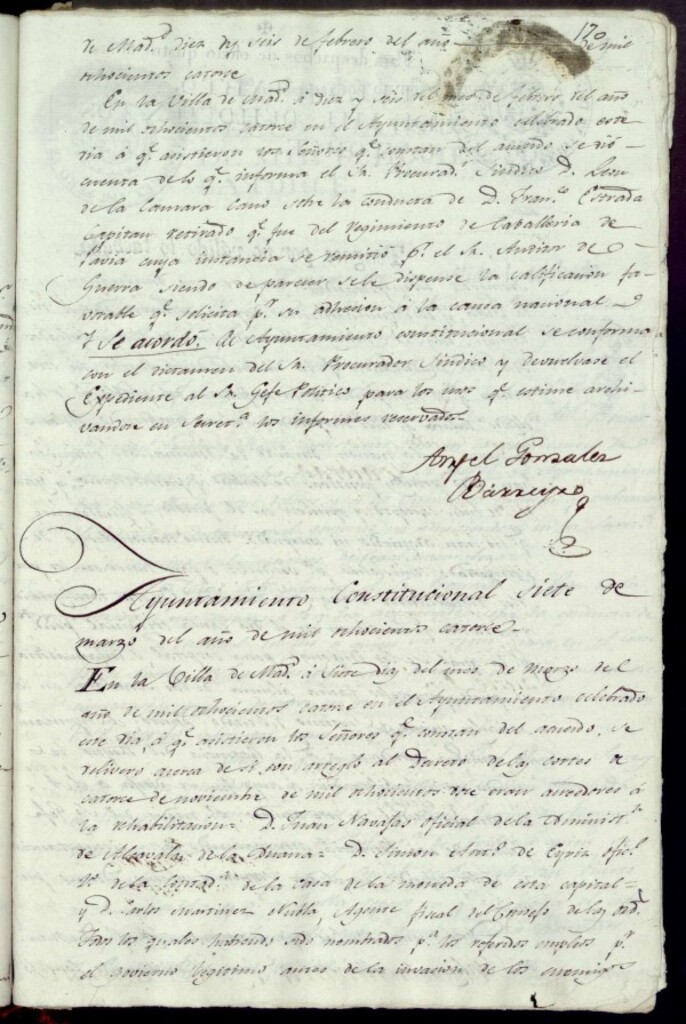 120
de Mad.^d diez y seis de febrero del año de mil
ochocientos catorce
En la Villa de Mad.^d á diez y seis del mes de febrero del año
de mil ochocientos catorce en el Ayuntamiento celebrado este
dia á q.^e asistieron los Señores q.^e constan del acuerdo se dió
cuenta de lo q.^e informa el Sr. Procurad.^r Sindico D. Leon
de la Camara Cano sobre la conducta de D. Fran.^co Estrada
Capitan retirado q.^e fue del regimiento de Caballeria de
Pavia cuya instancia se remitió p.^r el Sr. Auditor de
Guerra siendo de parecer se le dispense la calificacion fa-
vorable q.^e solicita p.^r su adhesion á la causa nacional
Y Se acordó. El Ayuntamiento constitucional se conforma
con el dictamen del Sr. Procurador Sindico y devuelvase el
Expediente al Sr. Gefe Politico para los usos q.^e estime archi-
vandose en Secret.^a los informes reservados
Angel Gonzalez
Barreyro
Ayuntamiento Constitucional siete de
marzo del año de mil ochocientos catorce.
En la Villa de Mad.^d á siete dias del mes de marzo del
año de mil ochocientos catorce en el Ayuntamiento celebrado
este dia, á q.^e asistieron los Señores q.^e constan del acuerdo, se
delivero acerca de si con arreglo al Decreto de las cortes de
catorce de noviembre de mil ochocientos doce eran acreedores á
la rehabilitacion= D. Juan Navafas oficial de la Administ.^n
de Alcavalas de la Aduana= D. Simon Ant.^o de Eyriz ofic.^l
1.^o de la Contad.^a de la casa de la moneda de esta capital=
y D. Carlos Martinez Agente fiscal del Consejo de las Ord.^s
Todos los quales habiendo sido nombrados p.^a los referidos empleos p.^r
el govierno legitimo antes de la invasion de los enemigos